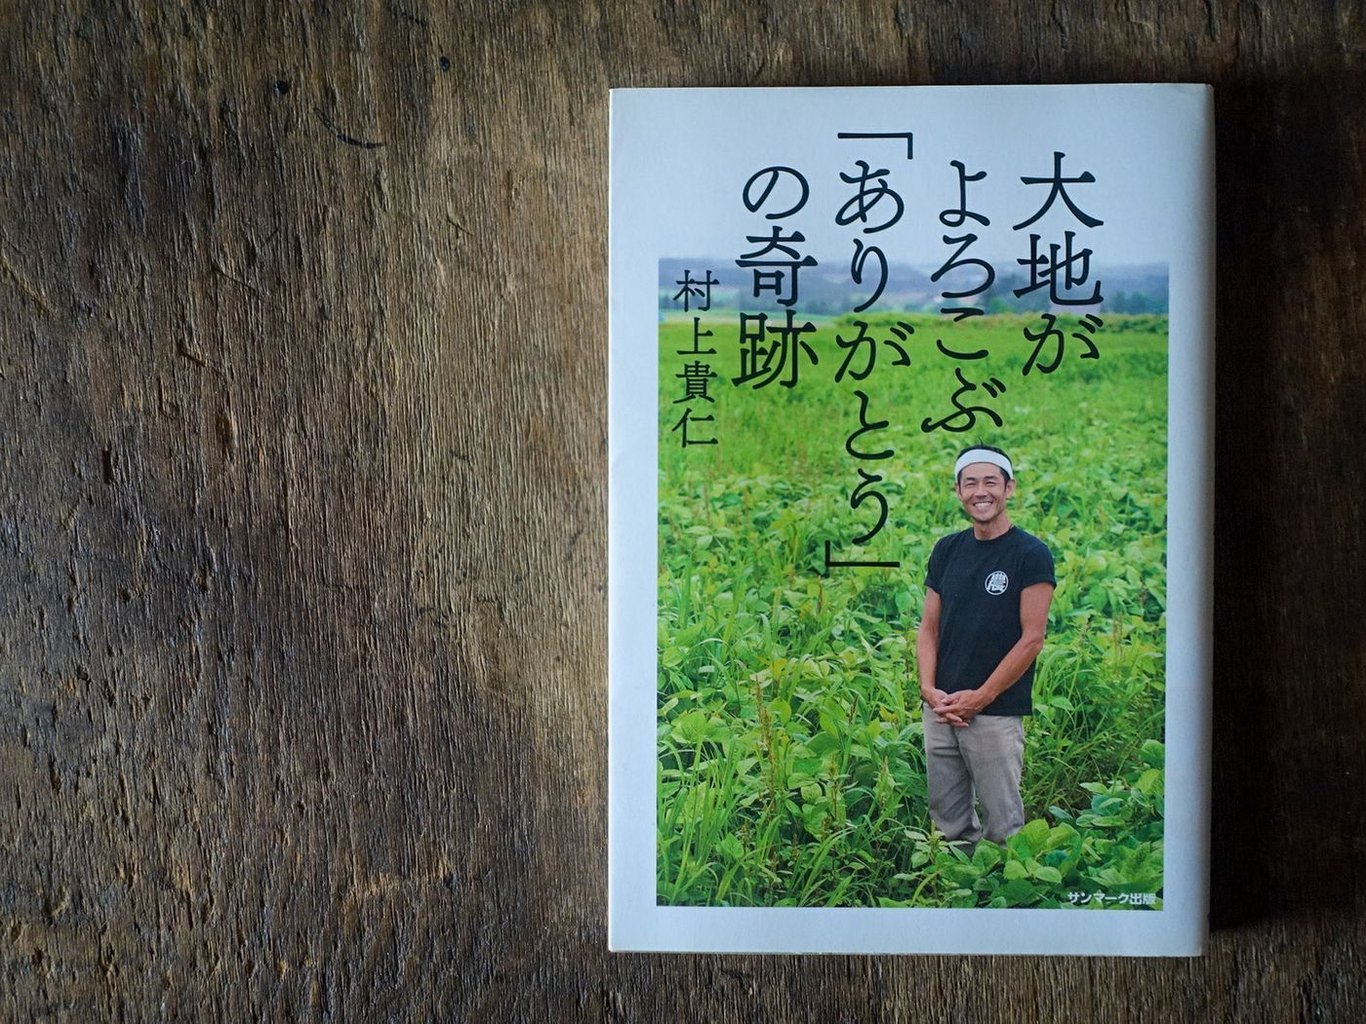 大地が
よろこぶ
「ありがとう」
の奇跡
村上貴仁
農
サンマーク出版